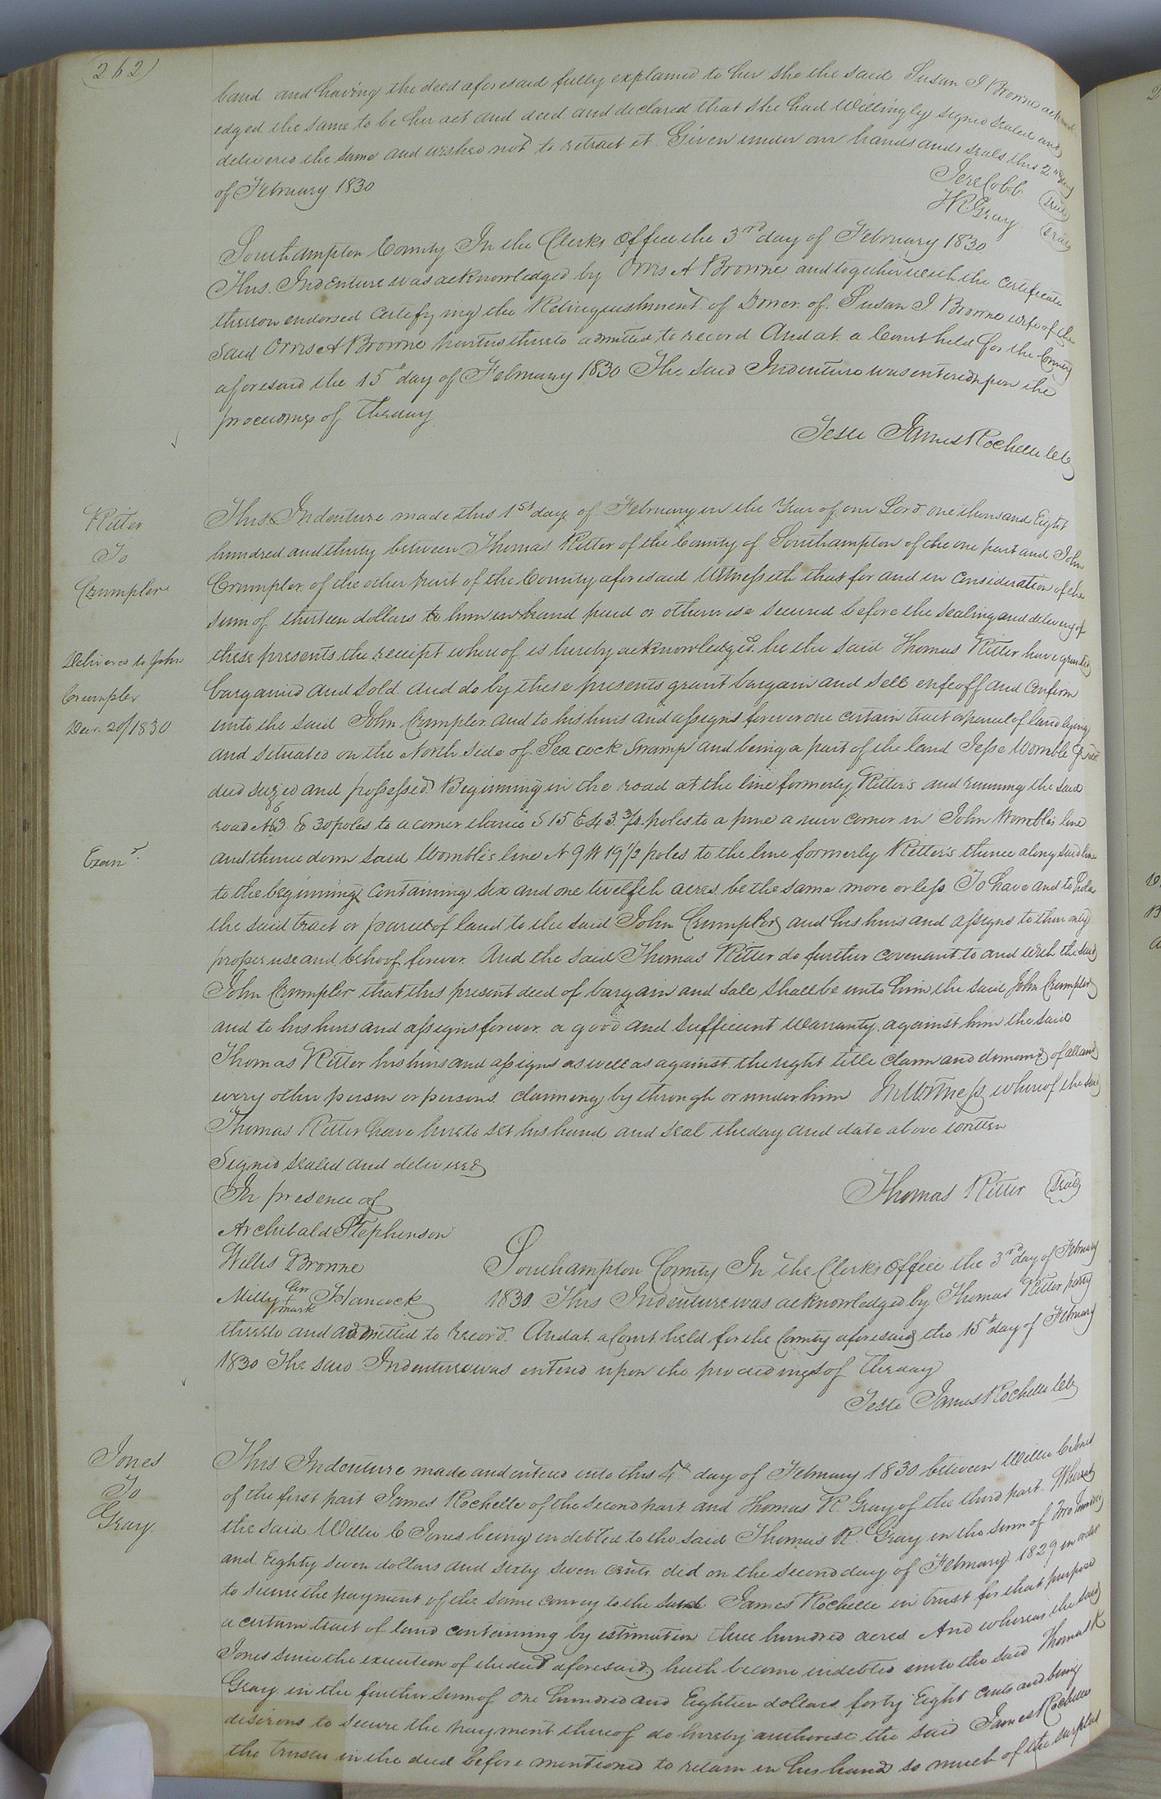 (262)
band and having the deed aforesaid fully explained to her she the said Susan J Browne acknowl
edged the same to be her act and deed and declared that she had willingly signed sealed and
delivered the same and wished not to retract it Given under our hands and seals this 2nd day
of February 1830
Jere Cobb (Seal)
H R Gray (Seal)
Southampton County In the Clerks Office the 3rd day of February 1830
This Indenture was acknowledged by Orris A Browne and together with the certificate
thereon endorsed certifying the Relinquishment of Dower of Susan J Browne wife of the
said Orris A Browne parties thereto admitted to record And at a Court held for the County
aforesaid the 15th day of February 1830 The said Indenture was entered upon the
proceedings of the day
Teste James Rochelle Clk
Ritter
To
Crumpler
Delivered to John
Crumpler
Decr 20/1830
Examd
This Indenture made this 1st day of February in the Year of our Lord one thousand Eight
hundred and thirty between Thomas Ritter of the County of Southampton of the one part and John
Crumpler of the other part of the County aforesaid Witnesseth that for and in Consideration of the
sum of thirteen dollars to him in hand paid or otherwise secured before the sealing and delivery of
these presents the receipt whereof is hereby acknowledged he the said Thomas Ritter have granted
bargained and sold and do by these presents grant bargain and sell enfeoff and confirm
unto the said John Crumpler and to his heirs and assigns forever one certain tract or parcel of land lying
and situated on the North side of Seacock Swamp and being a part of the land Jesse Womble
died seized and possessed Beginning in the road at the line formerly Ritter's and running the said
road N 63 E 30 poles to a corner thence S 15 E 43 3/4 poles to a pine a new corner in John Womble's line
and thence down said Womble's line N 9 W 19 1/2 poles to the line formerly Ritter's thence along said line
to the beginning containing six and one twelfth acres be the same more or less To have and to hold
the said tract or parcel of land to the said John Crumpler and his heirs and assigns to their only
proper use and behoof forever And the said Thomas Ritter do further covenant to and with the said
John Crumpler that this present deed of bargain and sale shall be unto him the said John Crumpler
and to his heirs and assigns forever a good and sufficient warranty against him the said
Thomas Ritter his heirs and assigns as well as against the right title claim and demand of all and
every other person or persons claiming by through or under him In Witness whereof the said
Thomas Ritter have hereto set his hand and seal the day and date above written
Signed sealed and delivered
In presence of
Thomas Ritter (Seal)
Archibald Stephenson
Willis Browne
Milly her + mark Hancock
Southampton County In the Clerks Office the 3rd day of February
1830 This Indenture was acknowledged by Thomas Ritter party
thereto and admitted to record And at a Court held for the County aforesaid the 15th day of February
1830 The said Indenture was entered upon the proceedings of the day
Teste James Rochelle Clk
Jones
To
Gray
This Indenture made and entered into this 4th day of February 1830 between Willie C Jones
of the first part James Rochelle of the second part and Thomas R Gray of the third part Whereas
the said Willie C Jones being indebted to the said Thomas R Gray in the sum of Two hundred
and Eighty seven dollars and sixty seven cents did on the second day of February 1829 in order
to secure the payment of the same convey to the said James Rochelle in trust for that purpose
a certain tract of land containing by estimation three hundred acres And whereas the said
Jones since the execution of the deed aforesaid hath become indebted unto the said Thomas R
Gray in the further sum of one hundred and Eighteen dollars forty Eight cents and being
desirous to secure the payment thereof do hereby authorise the said James Rochelle
the trustee in the deed before mentioned to retain in his hands so much of the surplus